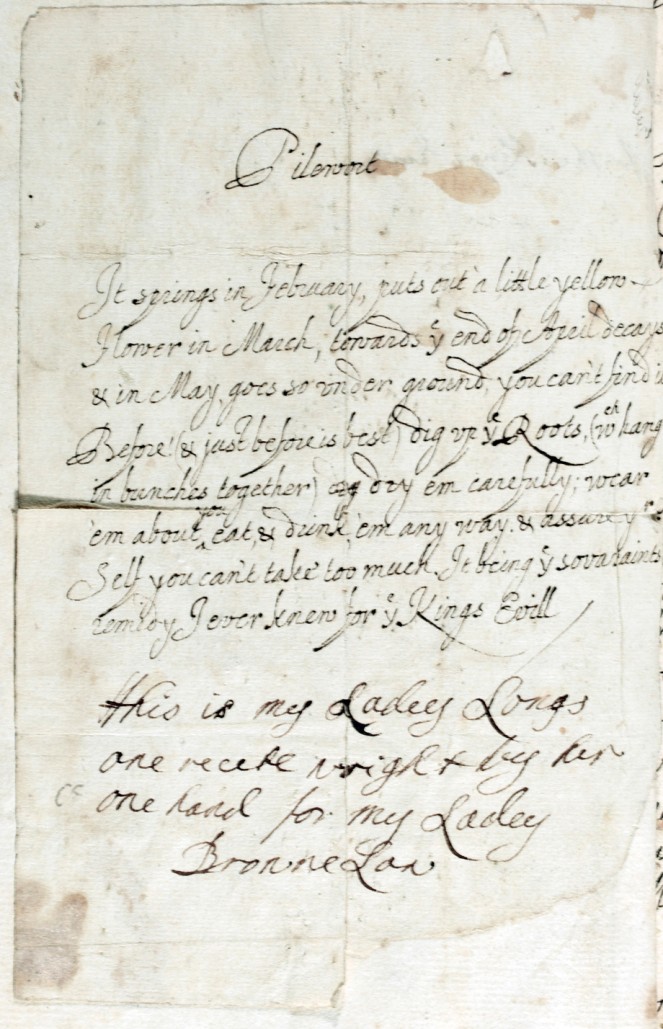 Pilewort
It springs in February, puts out a little yellow
Flower in March, towards ye end of April decays
& in May, goes so vnder ground, you can't find it
Before (& just before is best) dig vp ye Roots, (wch hang
in bunches together) dry em carefully; wear
'em about you, eat, & drink 'em any way, & assure yr
Self you can't take too much, It being ye sovaraints
remedy I ever knew for ye Kings Evill
this is my Ladey Longs
one recete wright by her
one hand for my Ladey
Bronnelow